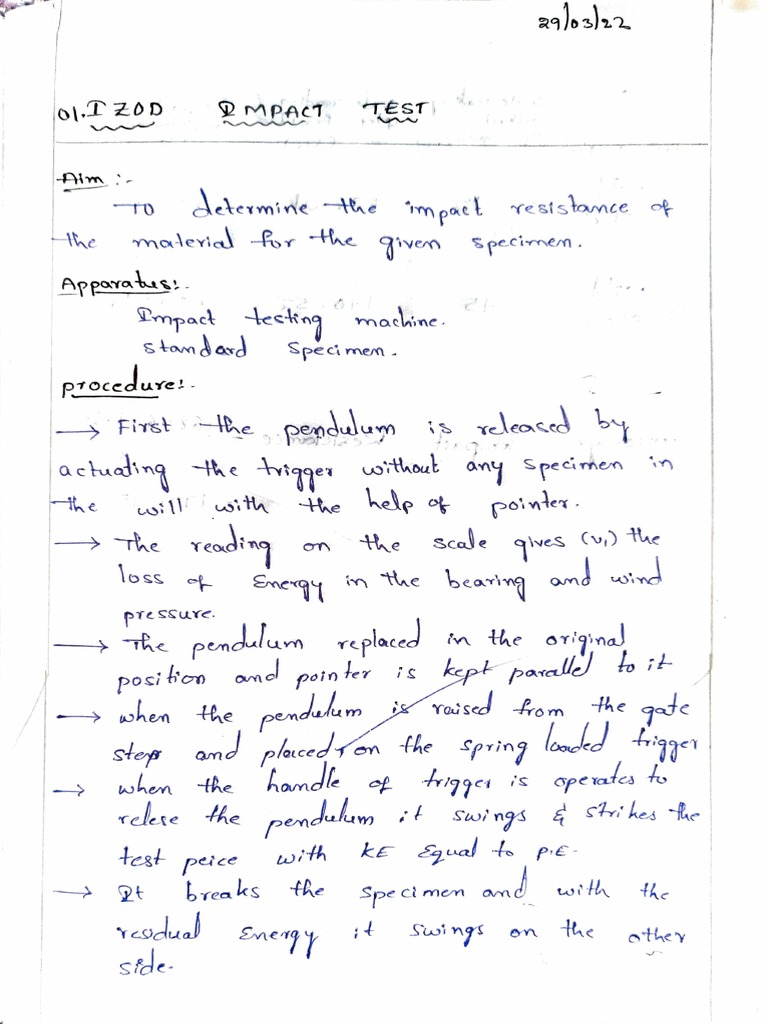 29/03/22
01. IZOD IMPACT TEST
Aim :-
To determine the impact resistance of
the material for the given specimen.
Apparatus:-
Impact testing machine.
Standard Specimen.
procedure:-
→ First the pendulum is released by
actuating the trigger without any specimen in
the will with the help of pointer.
→ The reading on the scale gives (v₁) the
loss of Energy in the bearing and wind
pressure.
→ The pendulum replaced in the original
position and pointer is kept parallel to it
→ when the pendulum is raised from the gate
step and placed on the spring loaded trigger
→ when the handle of trigger is operates to
relese the pendulum it swings & strikes the
test peice with KE Equal to P.E.
→ It breaks the specimen and with the
residual Energy it swings on the other
side.